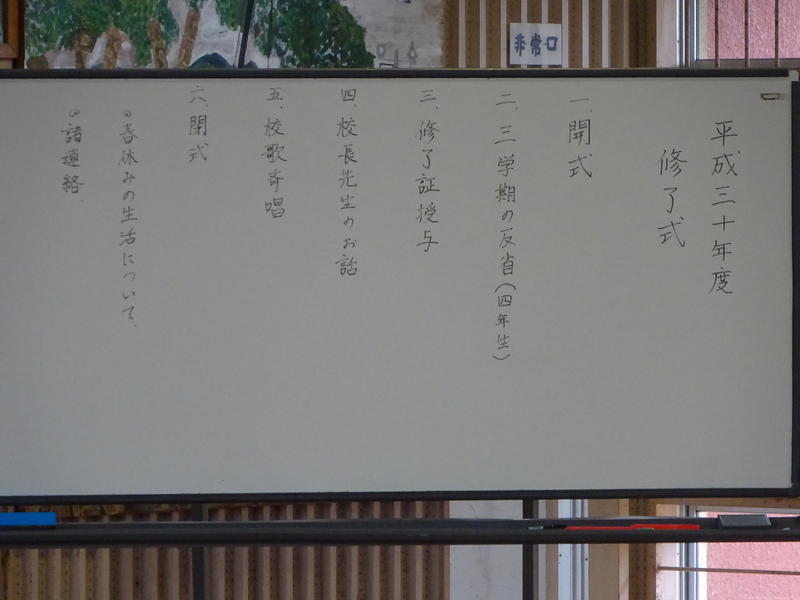 非常口
平成三十年度
修了式
一、開式
二、三学期の反省(四年生)
三、修了証授与
四、校長先生のお話
五、校歌斉唱
六、閉式
◎春休みの生活について、
◎諸連絡、